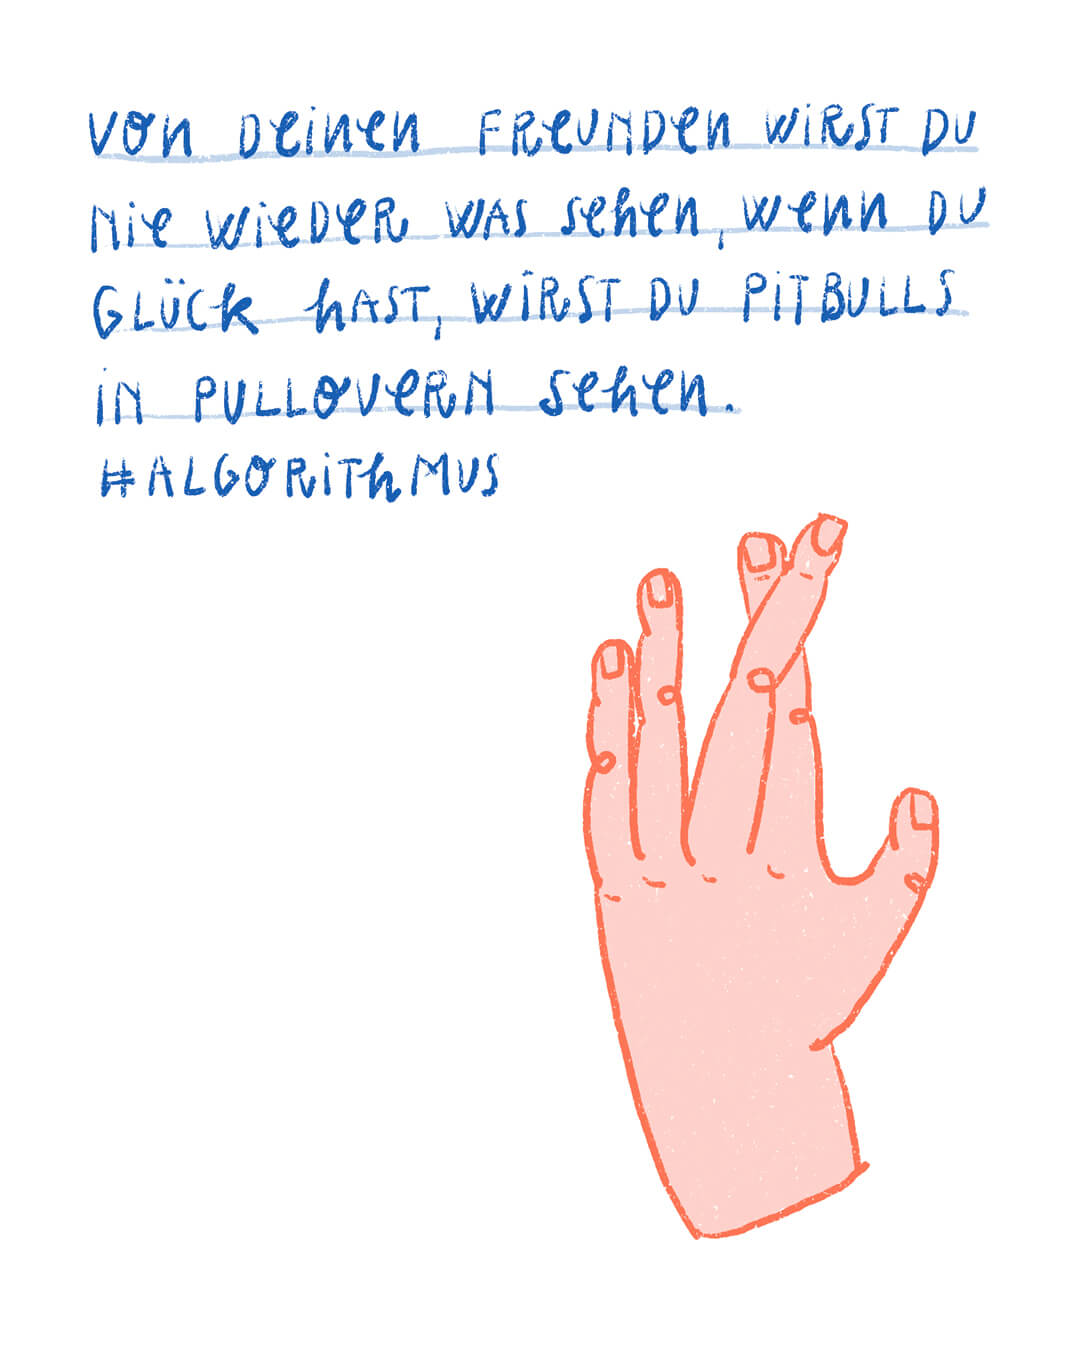 Von deinen Freunden wirst du
nie wieder was sehen, wenn du
Glück hast, wirst du Pitbulls
in Pullovern sehen.
#Algorithmus